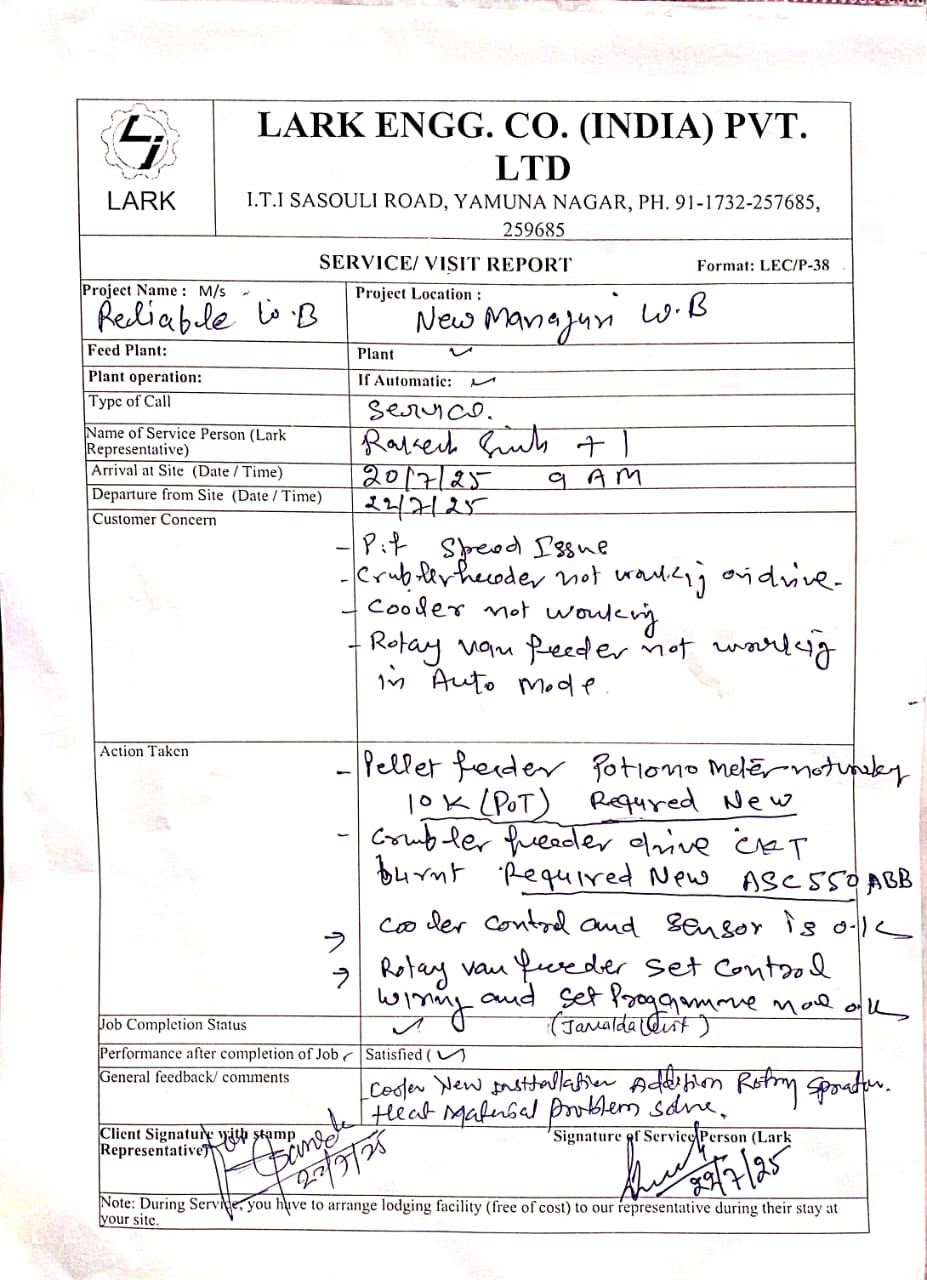 LARK
LARK ENGG. CO. (INDIA) PVT.
LTD
I.T.I SASOULI ROAD, YAMUNA NAGAR, PH. 91-1732-257685,
259685
SERVICE/ VISIT REPORT Format: LEC/P-38
Project Name : M/s
Reliable W.B
Project Location :
New W.B
Feed Plant: Plant ✓
Plant operation: If Automatic: ✓
Type of Call Service.
Name of Service Person (Lark
Representative) + 1
Arrival at Site (Date / Time) 20/7/25 9 AM
Departure from Site (Date / Time) 22/7/25
Customer Concern
- P.f Speed Issue
- not drive.
- Cooler not
- Rotay van feeder not
in Auto Mode.
Action Taken
- Pellet feeder
10 K (POT) Requred New
- feeder drive CKT
burnt Required New ASC 550 ABB
→ Cooler Control and Sensor is o.k
→ Rotay van feeder Set Control
wiring and Set ok
Job Completion Status ✓
Performance after completion of Job Satisfied ( ✓ )
General feedback/ comments
Cooler New Addition Rotry
Heat Material problem solve.
Client Signature with stamp
Representative)
22/7/25
Signature of Service Person (Lark
22/7/25
Note: During Service, you have to arrange lodging facility (free of cost) to our representative during their stay at
your site.